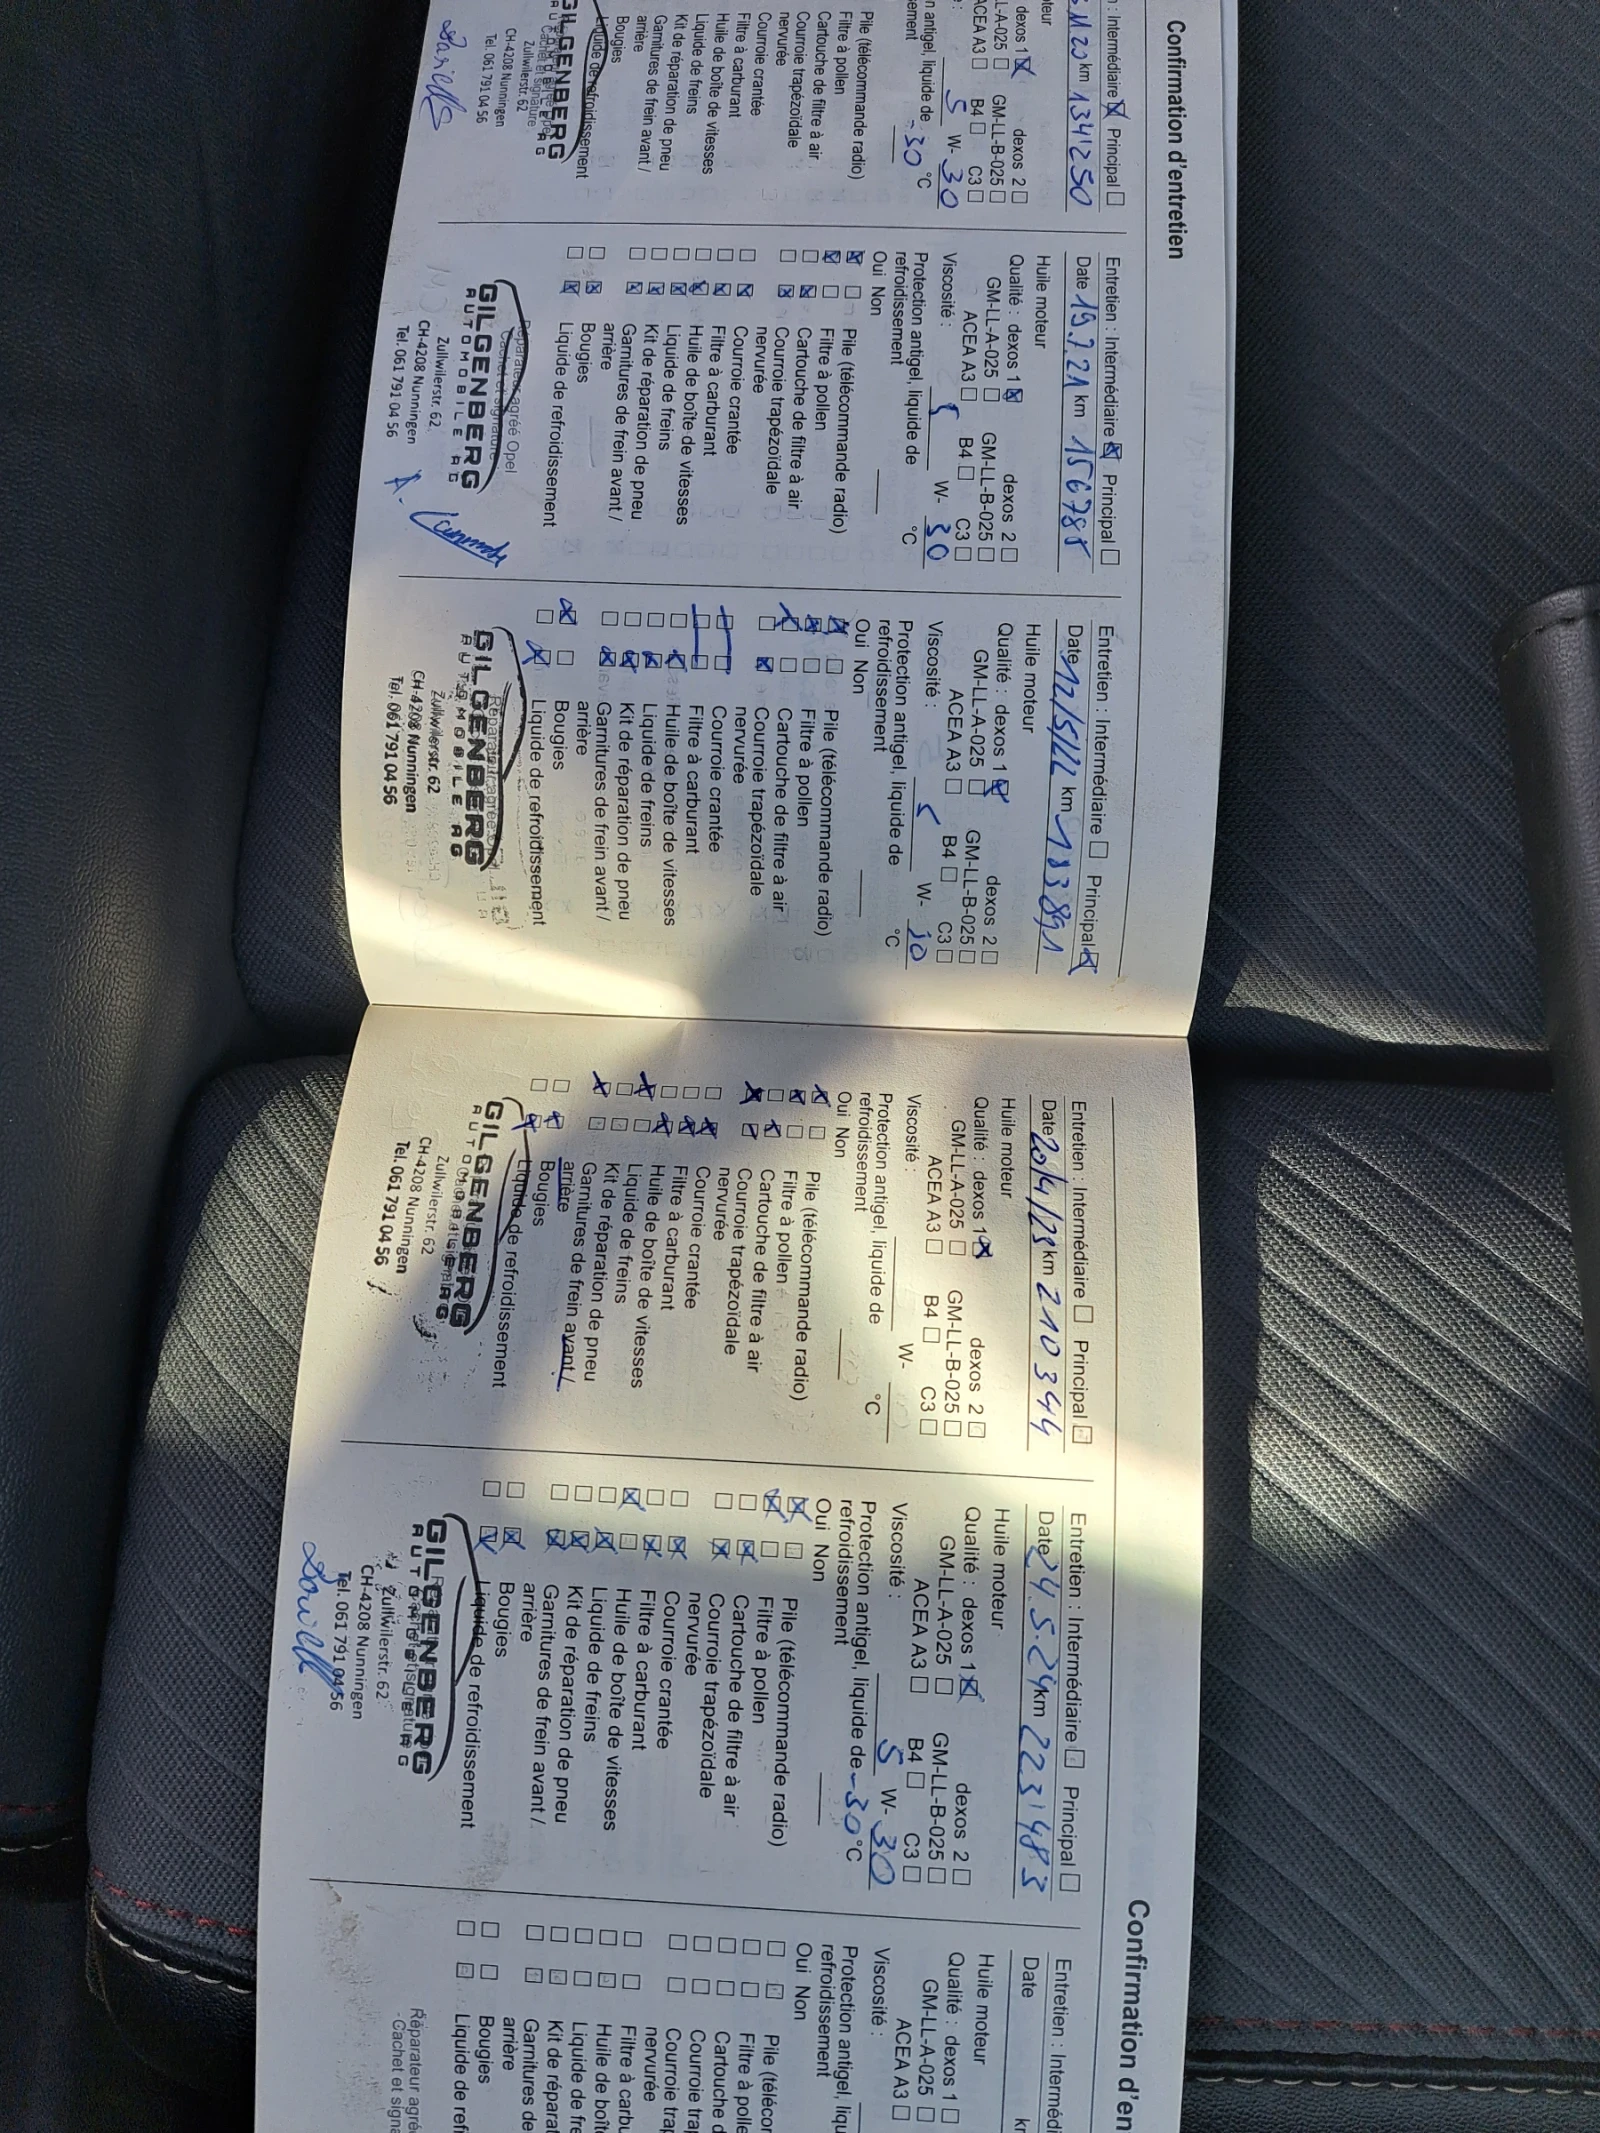 Confirmation d'entretien
n : Intermédiaire ☒ Principal ☐
km 134'250
oteur
dexos 1 ☒ dexos 2 ☐
L-A-025 ☐ GM-LL-B-025 ☐
ACEA A3 ☐ B4 ☐ C3 ☐
5 W- 30
n antigel, liquide de
ement -30 °C
Pile (télécommande radio)
Filtre à pollen
Cartouche de filtre à air
Courroie trapézoïdale
nervurée
Courroie crantée
Filtre à carburant
Huile de boîte de vitesses
Liquide de freins
Kit de réparation de pneu
Garnitures de frein avant /
arrière
Bougies
Liquide de refroidissement
GILGENBERG
AUTOMOBILE AG
Cachet et signature
Zullwilerstr. 62
CH-4208 Nunningen
Tel. 061 791 04 56
Entretien : Intermédiaire ☒ Principal ☐
Date 19.7.21 km 156788
Huile moteur
Qualité : dexos 1 ☒ dexos 2 ☐
GM-LL-A-025 ☐ GM-LL-B-025 ☐
ACEA A3 ☐ B4 ☐ C3 ☐
Viscosité : 5 W- 30
Protection antigel, liquide de
refroidissement °C
Oui Non
☒ ☐ Pile (télécommande radio)
☒ ☐ Filtre à pollen
☐ ☒ Cartouche de filtre à air
☐ ☒ Courroie trapézoïdale
nervurée
☐ ☒ Courroie crantée
☐ ☒ Filtre à carburant
☐ ☒ Huile de boîte de vitesses
☐ ☒ Liquide de freins
☐ ☒ Kit de réparation de pneu
☐ ☒ Garnitures de frein avant /
arrière
☐ ☒ Bougies
☐ ☒ Liquide de refroidissement
Réparateur agréé Opel
Cachet et signature
GILGENBERG
AUTOMOBILE AG
Zullwilerstr. 62
CH-4208 Nunningen
Tel. 061 791 04 56
Entretien : Intermédiaire ☐ Principal ☒
Date 12/5/22 km 183891
Huile moteur
Qualité : dexos 1 ☒ dexos 2 ☐
GM-LL-A-025 ☐ GM-LL-B-025 ☐
ACEA A3 ☐ B4 ☐ C3 ☐
Viscosité : 5 W- 30
Protection antigel, liquide de
refroidissement °C
Oui Non
☒ ☐ Pile (télécommande radio)
☒ ☐ Filtre à pollen
☒ ☐ Cartouche de filtre à air
☐ ☒ Courroie trapézoïdale
nervurée
☐ ☐ Courroie crantée
☐ ☐ Filtre à carburant
☐ ☒ Huile de boîte de vitesses
☐ ☒ Liquide de freins
☐ ☒ Kit de réparation de pneu
☐ ☒ Garnitures de frein avant /
arrière
☒ ☐ Bougies
☐ ☒ Liquide de refroidissement
GILGENBERG
AUTOMOBILE AG
Zullwilerstr. 62
CH-4208 Nunningen
Tel. 061 791 04 56
Entretien : Intermédiaire ☐ Principal ☐
Date 20/4/23 km 210344
Huile moteur
Qualité : dexos 1 ☒ dexos 2 ☐
GM-LL-A-025 ☐ GM-LL-B-025 ☐
ACEA A3 ☐ B4 ☐ C3 ☐
Viscosité : W-
Protection antigel, liquide de
refroidissement °C
Oui Non
☒ ☐ Pile (télécommande radio)
☒ ☐ Filtre à pollen
☐ ☒ Cartouche de filtre à air
☒ ☐ Courroie trapézoïdale
nervurée
☐ ☒ Courroie crantée
☐ ☒ Filtre à carburant
☐ ☒ Huile de boîte de vitesses
☒ ☐ Liquide de freins
☐ ☐ Kit de réparation de pneu
☒ ☐ Garnitures de frein avant /
arrière
☐ ☒ Bougies
☐ ☒ Liquide de refroidissement
GILGENBERG
AUTOMOBILE AG
Zullwilerstr. 62
CH-4208 Nunningen
Tel. 061 791 04 56
Confirmation d'en
Entretien : Intermédiaire ☐ Principal ☐
Date 24.5.24 km 223'483
Huile moteur
Qualité : dexos 1 ☒ dexos 2 ☐
GM-LL-A-025 ☐ GM-LL-B-025 ☐
ACEA A3 ☐ B4 ☐ C3 ☐
Viscosité : 5 W- 30
Protection antigel, liquide de
refroidissement -30 °C
Oui Non
☒ ☐ Pile (télécommande radio)
☒ ☐ Filtre à pollen
☐ ☒ Cartouche de filtre à air
☐ ☒ Courroie trapézoïdale
nervurée
☐ ☒ Courroie crantée
☐ ☒ Filtre à carburant
☒ ☐ Huile de boîte de vitesses
☐ ☒ Liquide de freins
☐ ☒ Kit de réparation de pneu
☐ ☒ Garnitures de frein avant /
arrière
☐ ☒ Bougies
☐ ☒ Liquide de refroidissement
GILGENBERG
AUTOMOBILE AG
Zullwilerstr. 62
CH-4208 Nunningen
Tel. 061 791 04 56
Entretien : Intermédi
Date km
Huile moteur
Qualité : dexos 1 ☐
GM-LL-A-025 ☐
ACEA A3 ☐
Viscosité :
Protection antigel, liqu
refroidissement
Oui Non
☐ ☐ Pile (télécor
☐ ☐ Filtre à polle
☐ ☐ Cartouche d
☐ ☐ Courroie trap
nervurée
☐ ☐ Filtre à carbu
☐ ☐ Huile de boît
☐ ☐ Liquide de fre
☐ ☐ Kit de réparat
☐ ☐ Garnitures de
arrière
☐ ☐ Bougies
☐ ☐ Liquide de refr
Réparateur agré
Cachet et signa